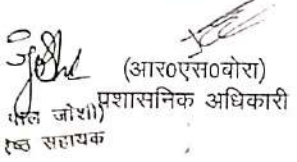 (आर०एस०वोरा)
प्रशासनिक अधिकारी
जोशी)
सहायक